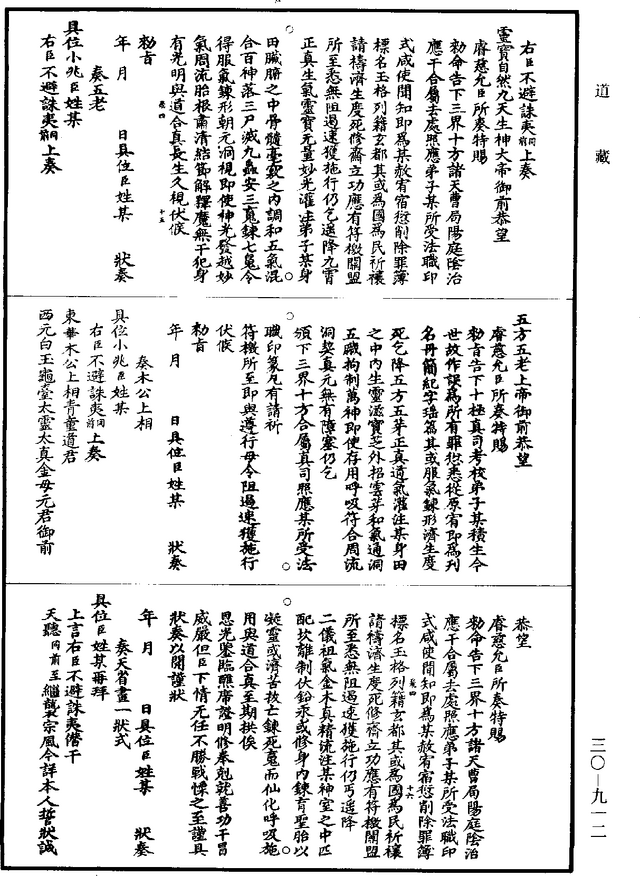 道藏
右臣不避誅夷同前上奏
靈寶自然九天生神大帝御前恭望
睿慈允臣所奏特賜
勑命告下三界十方諸天曹局陽庭陰治
應干合屬去處照應弟子某所受法職印
式咸使聞知即爲某赦宥宿愆削除罪簿
標名玉格列籍玄都其或爲國爲民祈禳
請禱濟生度死修齋立功應有符檄關盟
所至悉無阻遏速獲施行仍乞遥降九霄
正真生氣靈寶无量妙光灌注弟子某身
田臟腑之中骨髓毫竅之内調和五氣混
合百神落三尸滅九蟲安三魂鍊七魄令
得服氣鍊形朝元洞視即使神光發越妙
氣周流胎根肅清結節解釋魔無干犯身
有光明與道合真長生久視伏候
勑旨
年 月 日具位臣姓某 狀奏
奏五老
具位小兆臣姓某
右臣不避誅夷同前上奏
五方五老上帝御前恭望
睿慈允臣所奏特賜
勑旨告下十極真司考校弟子某積生今
世故作誤爲所有罪愆悉從原宥即爲列
名丹簡紀字瑶篇其或服氣鍊形濟生度
死乞降五方五芽正真道氣灌注某身田
之中内生靈滋寶芝外招雲芽和氣通洞
五臟拘制萬神即使存用呼吸符合周流
洞契真元無有障塞仍乞
頒下三界十方合屬真司照應某所受法
職印篆凡有請祈
符檄所至即與遵行毋令阻遏速獲施行
伏候
勑旨
年 月 日具位臣姓某 狀奏
奏木公上相
具位小兆臣姓某
右臣不避誅夷同前上奏
東華木公上相青童道君
西元白玉龜臺太靈太真金母元君御前
恭望
睿慈允臣所奏特賜
勑命告下三界十方諸天曹局陽庭陰治
應干合屬去處照應弟子某所受法職印
式咸使聞知即爲某赦宥宿愆削除罪簿
標名玉格列籍玄都其或爲國爲民祈禳
請禱濟生度死修齋立功應有符檄關盟
所至悉無阻遏速獲施行仍丐遥降
二儀祖氣金木真精流注某神室之中匹
配坎離制伏鉛汞或修身内鍊育聖胎以
凝靈或濟苦拔亡鍊死魂而仙化呼吸施
用與道合真至期拱俟
恩光鑒臨醮席證明修奉剋就善功干冒
威嚴但臣下情无任不勝戰慄之至謹具
狀奏以聞謹狀
年 月 日具位臣姓某 狀奏
奏天省畫一狀式
具位臣姓某再拜
上言右臣不避誅夷僭干
天聽同前至繼襲宗風今詳本人誓狀誠
三〇—九一二